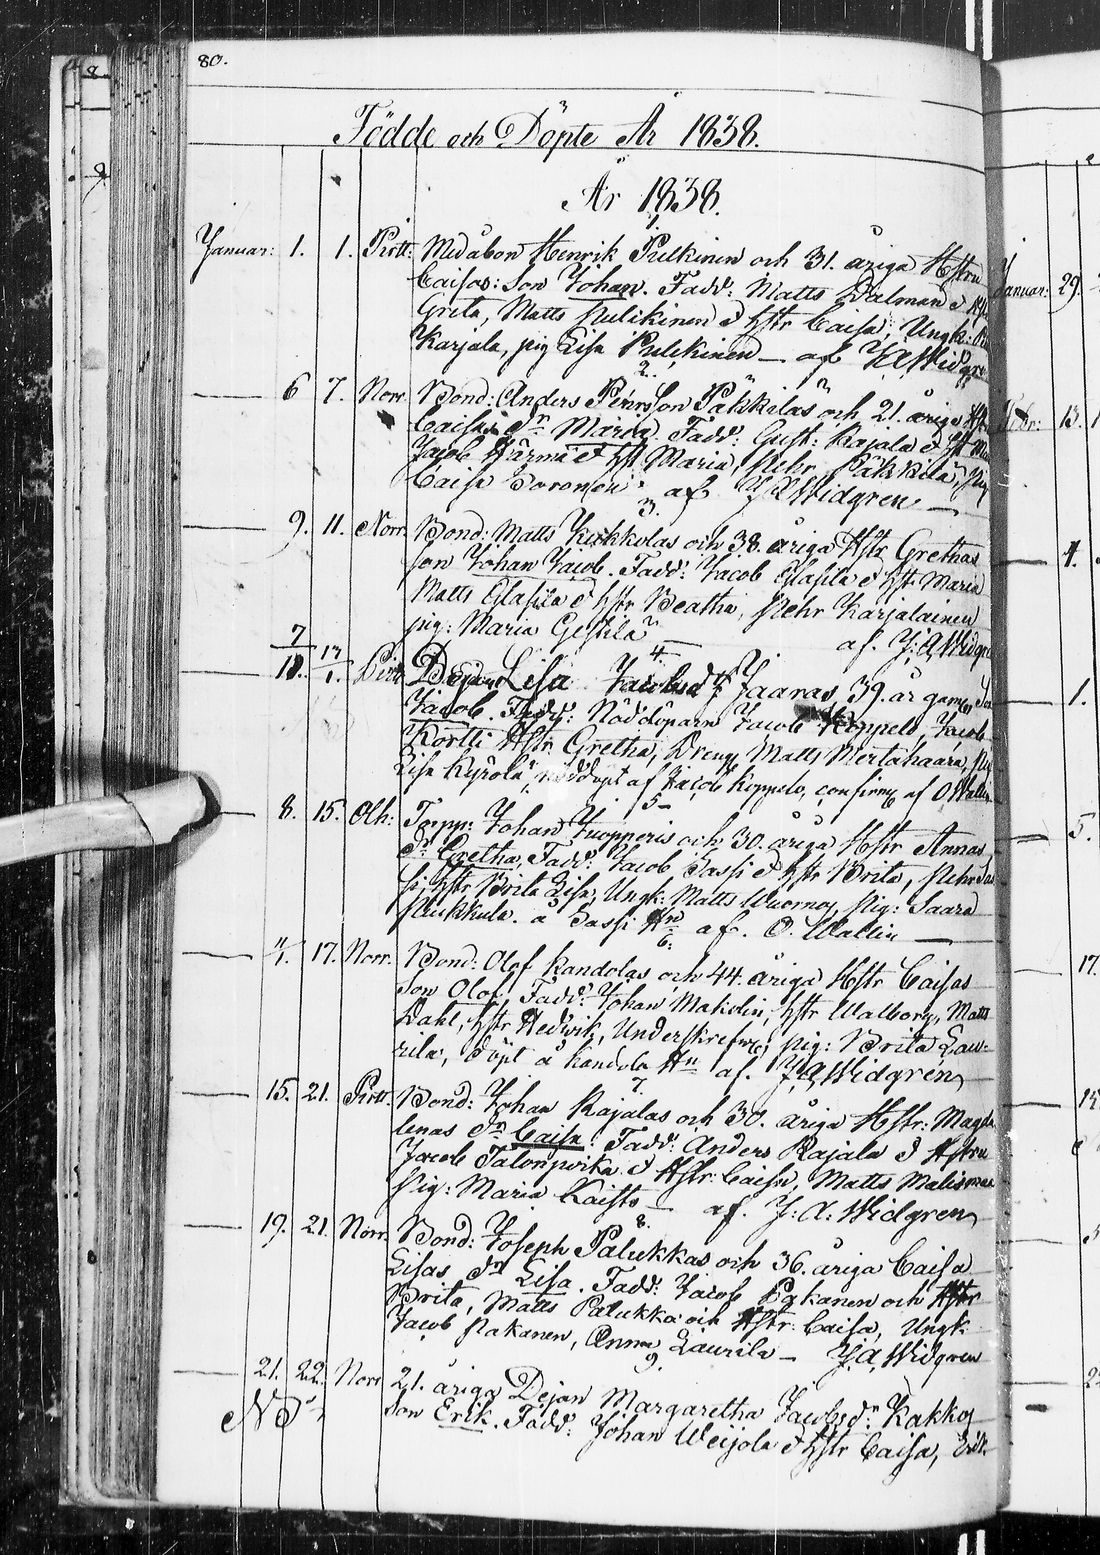 80.
Födde och Döpte År 1838.
År 1838.
1.
Januar: 1. 1. Pirtt: Medåbon Henrik Pulkinen och 31. åriga Hstru
Caisas: Son Johan. Fadd: Matts Dalman &
Greta, Matts Pulkinen & hstr Caisa, Ungk:
Karjala, pig Lisa Pulkinen — af J A Widgre
2.
6 7. Norr. Bond: Anders Persson Päkkilas och 21. åriga Hst
Caisas dr Maria. Fadd: Gust: Rajala & hst
Jacob Härmä & hst Maria, Påhr Päkkilä, Pig
Caisa Soronen af J A Widgren
3.
9. 11. Norr. Bond: Matts Kukkolas och 38. åriga Hstr Grethas
son Johan Jacob. Fadd: Jacob Alasila & hstr Maria
Matts Alasila & hstr Beatha, Pehr Karjalainen
pig: Maria af. J: A Widgre
4.
7 17 Pirtt Dejan Lisa Jacobsd Jaaras, 39. år gaml, Son
Jacob. Fadd: Nöddöparn Jacob Koppelo, Jacob
Kortti Hstr Gretha, Dreng Matts Mertahaara, Pig
Lisa Kyrölä, nöddöpt af Jacob Koppelo, confirm af O Wallin
5
8. 15. Olh: Torpr: Johan Juopperis och 30. åriga Hstr Annas
dr Gretha. Fadd: Jacob Sassi & hstr Brita, Pehr Sas
si, hstr Brita Lisa, Ungk: Matts Wuorno, Pig: Saara
Pukkula. å Sassi Hn af. O. Wallin
6.
4. 17. Norr. Bond: Olof Kandolas och 44. åriga Hstr Caisas
Son Olof, Fadd: Johan Makolin, hstr Walborg, Matts
Dahl, hstr Hedvik, Underskrefne, pig: Brita Lau-
rila, döpt å Kandola Hn af. J. A Widgren
7.
15. 21. Pirtt. Bond: Johan Rajalas och 30. åriga Hstr: Magda
lenas dr Caisa. Fadd: Anders Rajala & Hstru
Jacob Talonpoika & Hstr: Caisa, Matts
Pig: Maria Kaisto — af. J: A: Widgren
8.
19. 21. Norr. Bond: Joseph Palukkas och 36. åriga Caisa
Lisas dr Lisa. Fadd: Jacob Pakanen och Hstr
Brita, Matts Palukka och Hstr: Caisa, Ungk:
Jacob Pakanen, Anna Laurila — J A Widgren
9.
21. 22. Norr 21. åriga Dejan Margaretha Jacobsdr: Kakko
son Erik. Fadd: Johan Weijola & hstr Caisa, Erik
Januar: 29.
13.
4.
1.
5.
17.